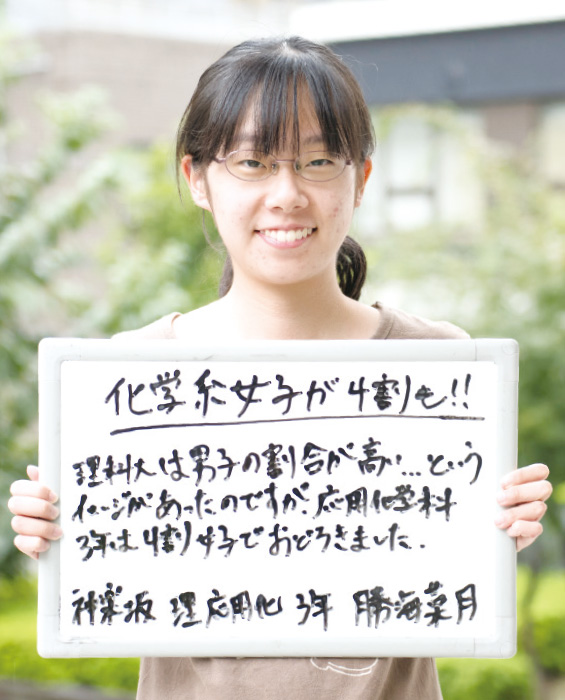 化学系女子が4割も!!
理科大は男子の割合が高い…という
イメージがあったのですが、応用化学科
3年は4割女子でおどろきました.
神楽坂 理 応用化 3年 勝海菜月